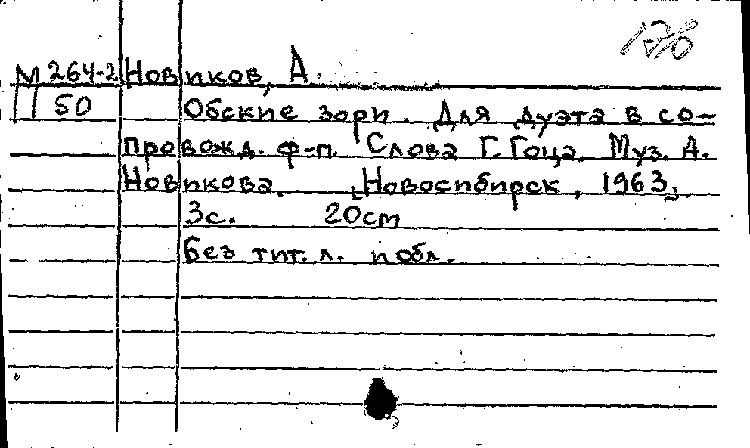 М 264-2 Новиков, А.
50 Обские зори. Для дуэта в со-
провожд. ф-п. Слова Г. Гоца. Муз. А.
Новикова. [Новосибирск, 1963].
3с. 20см
Без тит. л. и обл.